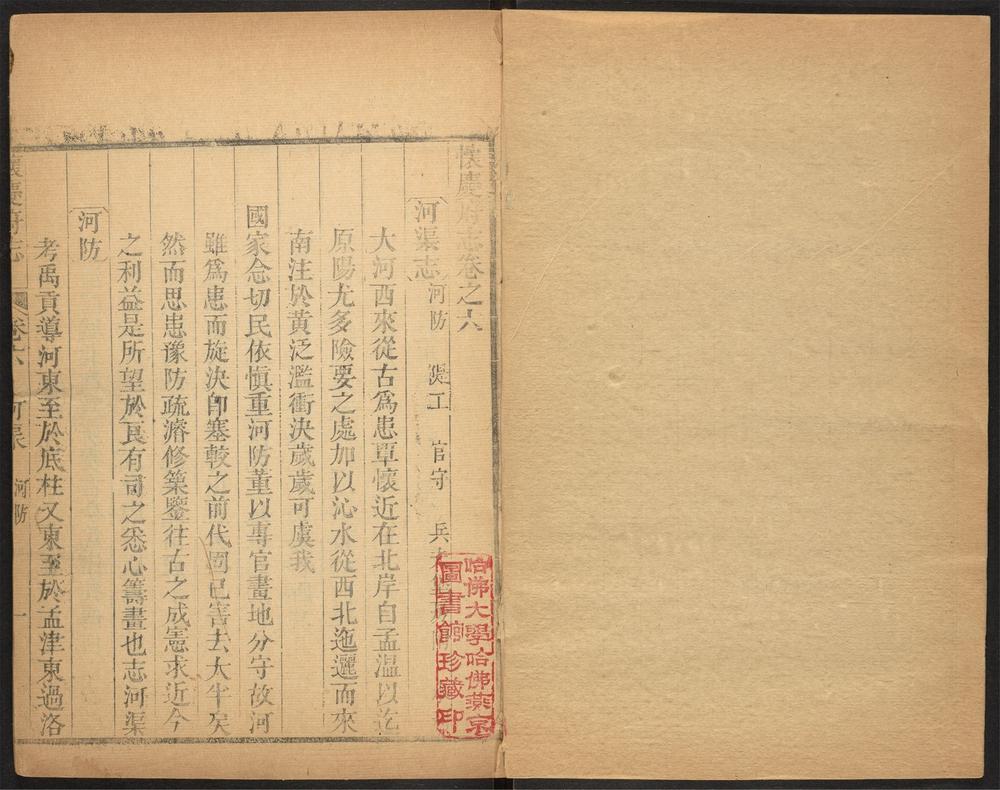 懷慶府志卷之六
河渠志 河防 堤工 官守 兵
大河西來從古爲患覃懷近在北岸自孟温以迄
原陽尤多險要之處加以沁水從西北迤邐而來
南注於黄泛濫衝決歲歲可虞我
國家念切民依慎重河防董以專官畫地分守故河
雖爲患而旋決即塞較之前代固已害去大半矣
然而思患豫防疏濬修築鑒往古之成憲求近今
之利益是所望於良有司之悉心籌畫也志河渠
河防
考禹貢導河東至於底柱又東至於孟津東過洛
懷慶府志 卷六 河渠 河防 一
哈佛大學哈佛燕京
圖書館珍藏印